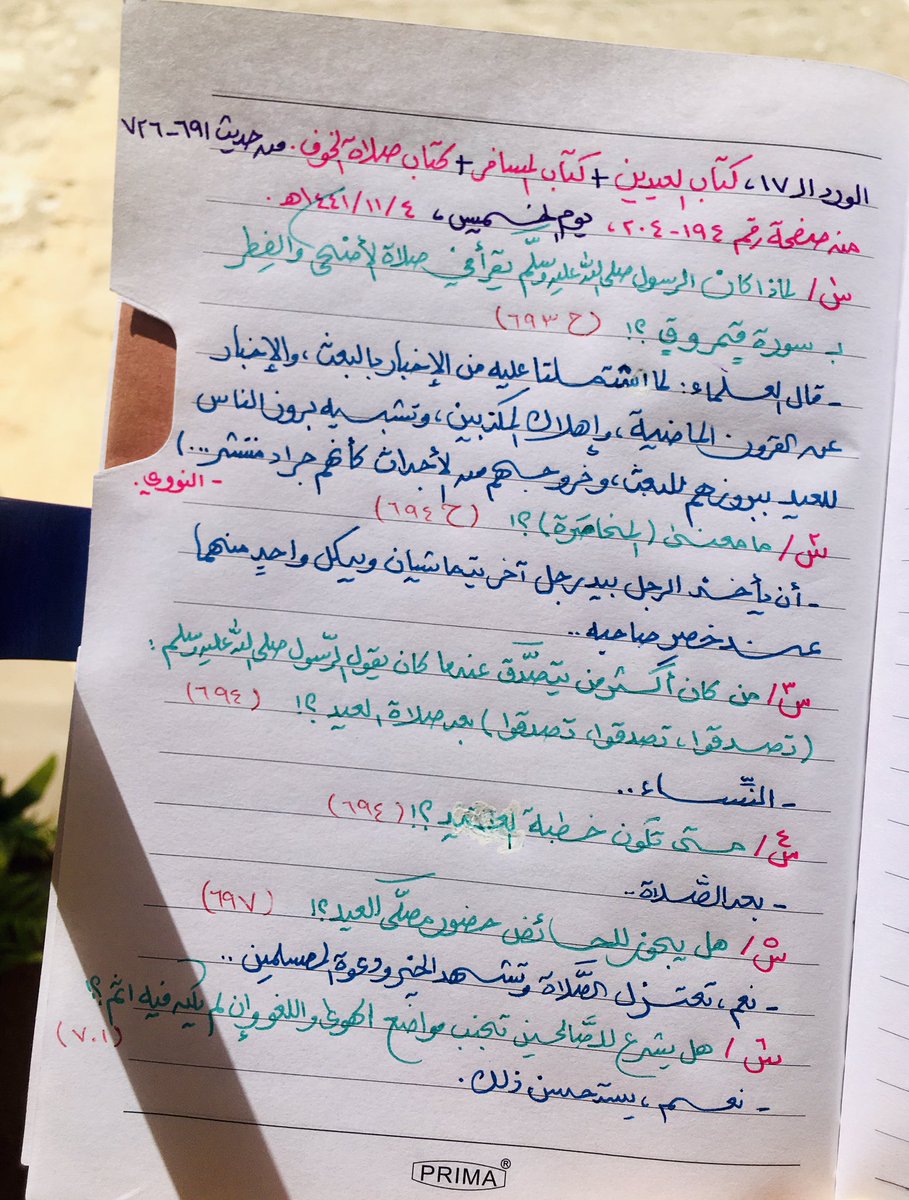 الورد الـ ١٧، كتاب العيدين + كتاب المسافر + كتاب صلاة الخوف. من حديث ٦٩١-٧٢٦
من صفحة رقم ١٩٤-٢٠٤، يوم الخميس، ١٤٤١/١١/٤هـ.
س١/ لماذا كان الرسول صلى الله عليه وسلّم يقرأ في صلاة الأضحى والفِطر
بـ سورة قٓ والقمر ؟! (ح ٦٩٣)
- قال العلماء: لما اشتملتا عليه من الإخبار بالبعث، والإخبار
عن القرون الماضية، وإهلاك المكذبين، وتشبيه بروز الناس
للعيد ببروزهم للبعث، وخروجهم من الأجداث كأنهم جراد منتشر...)
- النووي.
س٢/ ما معنى (المخاصَرة)؟! (ح ٦٩٤)
- أن يأخذ الرجل بيد رجل آخر يتماشيان ويد كل واحدٍ منهما
عند خصر صاحبه ..
س٣/ من كان أكثر من يتصدَّق عندما كان يقول الرّسول صلى الله عليه وسلم:
(تصدقوا، تصدقوا، تصدقوا) بعد صلاة العيد ؟! (٦٩٤)
- النِّساء ..
س٤/ متى تكون خطبة العيد ؟! (٦٩٤)
- بعد الصَّلاة ..
س٥/ هل يجوز للحائض حضور مصلّى العيد ؟! (٦٩٧)
- نعم، تعتزل الصَّلاة وتشهد الخير ودعوة المسلمين ..
س٦/ هل يشرع للصَّالحين تجنب مواضع الهوى واللغو وإن لم يكن فيه اثم ؟!
(٧٠١)
- نعم، يستحسن ذلك.
PRIMA®